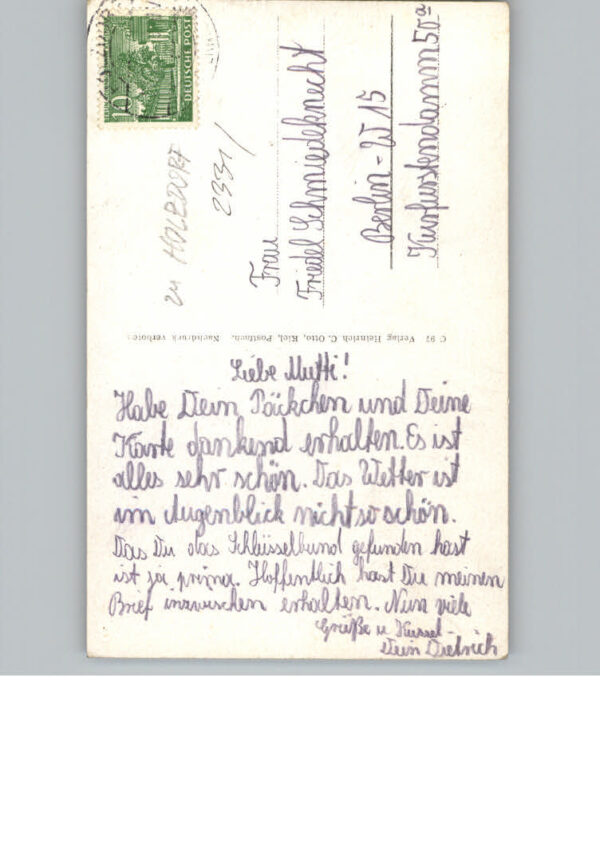 10
DEUTSCHE POST
zu HOLZDORF
2331/
Frau
Friedel Schmiedeknecht
Berlin - W 15
Kurfürstendamm 50a
C 97 Verlag Heinrich C. Otto, Kiel, Postfach. Nachdruck verboten
Liebe Mutti!
Habe Dein Päckchen und Deine
Karte dankend erhalten. Es ist
alles sehr schön. Das Wetter ist
im Augenblick nicht so schön.
Das Du das Schlüsselbund gefunden hast
ist ja prima. Hoffentlich hast Du meinen
Brief inzwischen erhalten. Nun viele
Grüße u Küssel
Dein Dietrich